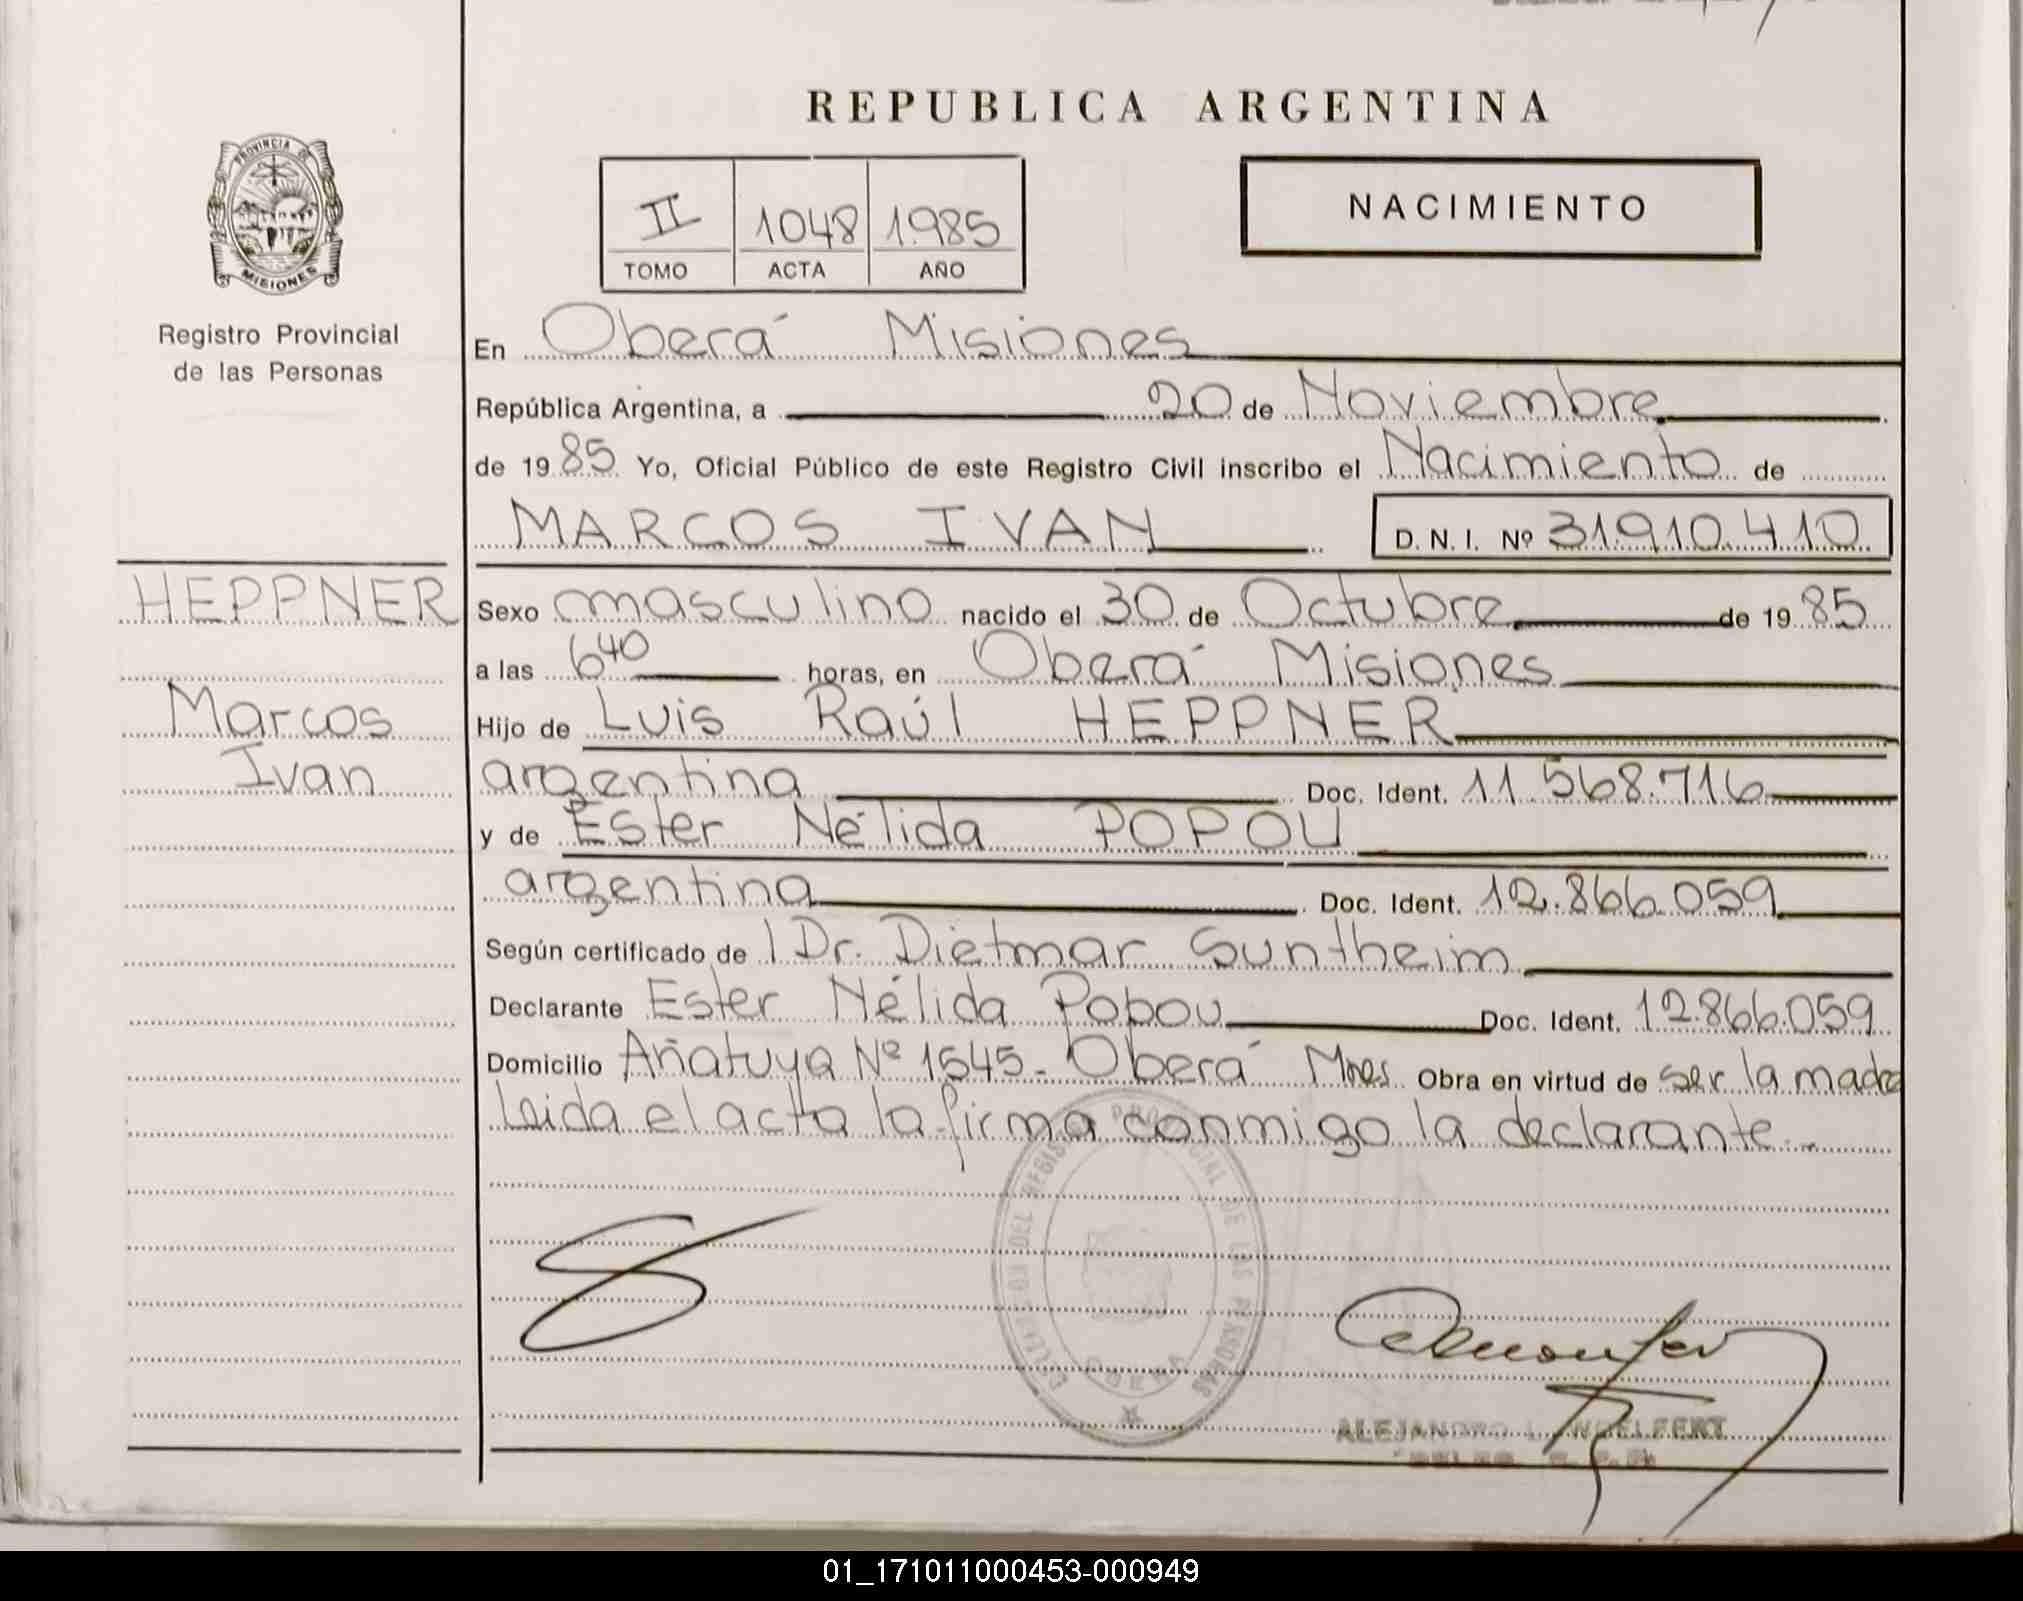 REPUBLICA ARGENTINA
PROVINCIA DE
MISIONES
Registro Provincial
de las Personas
II 1048 1.985
TOMO ACTA AÑO
NACIMIENTO
En Oberá Misiones
República Argentina, a 20 de Noviembre
de 1985 Yo, Oficial Público de este Registro Civil inscribo el Nacimiento de
MARCOS IVAN D. N. I. Nº 31.910.410
HEPPNER
Marcos
Ivan
Sexo masculino nacido el 30 de Octubre de 1985
a las 6 40 horas, en Oberá Misiones
Hijo de Luis Raúl HEPPNER
argentina Doc. Ident. 11.568.716
y de Ester Nélida POPOU
argentina Doc. Ident. 12.866.059
Según certificado de l Dr. Dietmar Suntheim
Declarante Ester Nélida Popou Doc. Ident. 12.866.059
Domicilio Añatuya Nº 1545- Oberá Mnes. Obra en virtud de ser la madre
Leida el acta la firma conmigo la declarante.-
DEL REGISTRO PROVINCIAL DE LAS PERSONAS
OBERA
ALEJANDRO
01_171011000453-000949